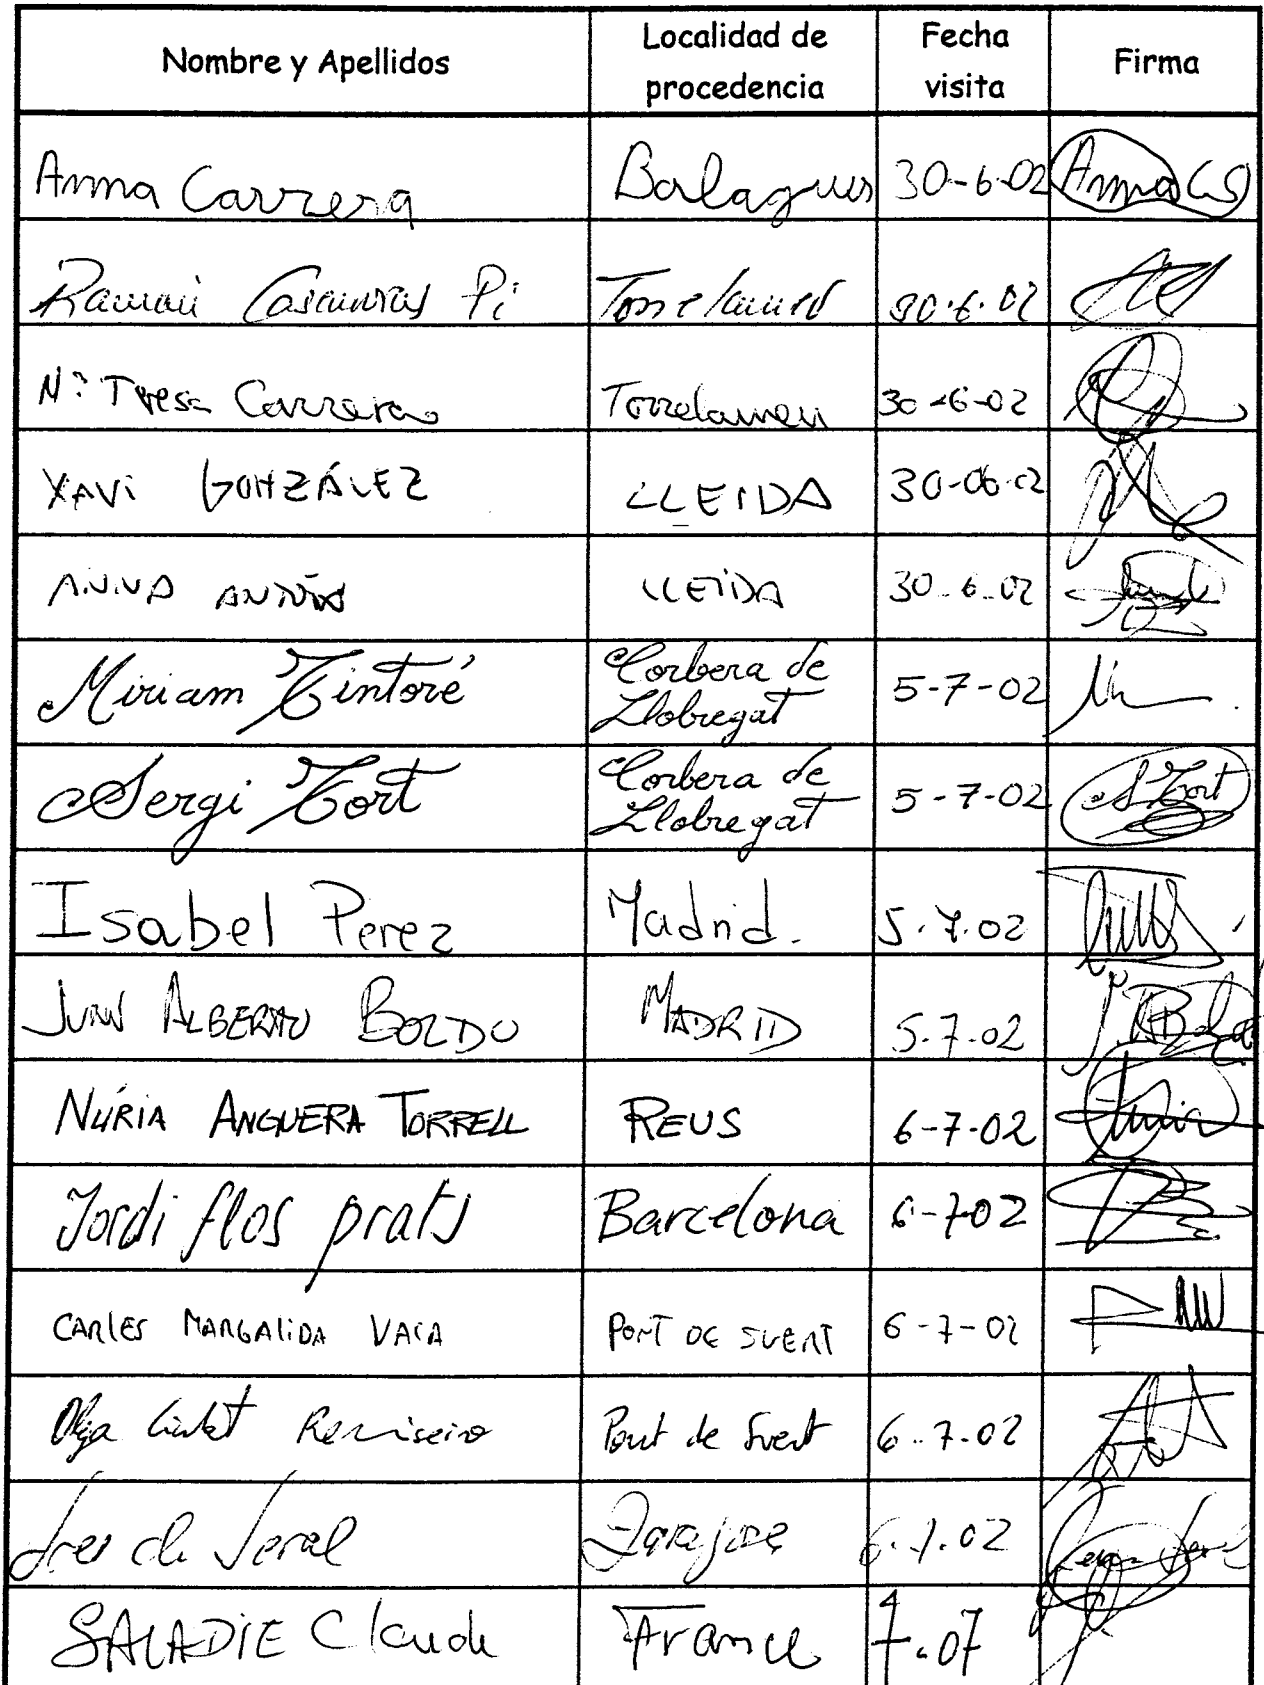 Nombre y Apellidos Localidad de procedencia Fecha visita Firma
Anna Carrera Balaguer 30-6-02 Anna CS
Ramón Casanovas Pi Torrelameu 30.6.02
Mª Teresa Carrera Torrelameu 30-6-02
XAVI GONZÁLEZ LLEIDA 30-06-02
ANNA LLEIDA 30-6-02
Miriam Tintoré Corbera de Llobregat 5-7-02
Sergi Tort Corbera de Llobregat 5-7-02 S. Tort
Isabel Perez Madrid. 5.7.02
JUAN ALBERTO BOLDU MADRID 5.7.02
NÚRIA ANGUERA TORRELL REUS 6-7-02 Núria
Jordi flos prats Barcelona 6-702
CARLES MARGALIDA VACA PONT DE SUERT 6-7-02
Olga Pont de Suert 6.7.02
Zaragoza 6.7.02
SALADIE Claude France 7.07